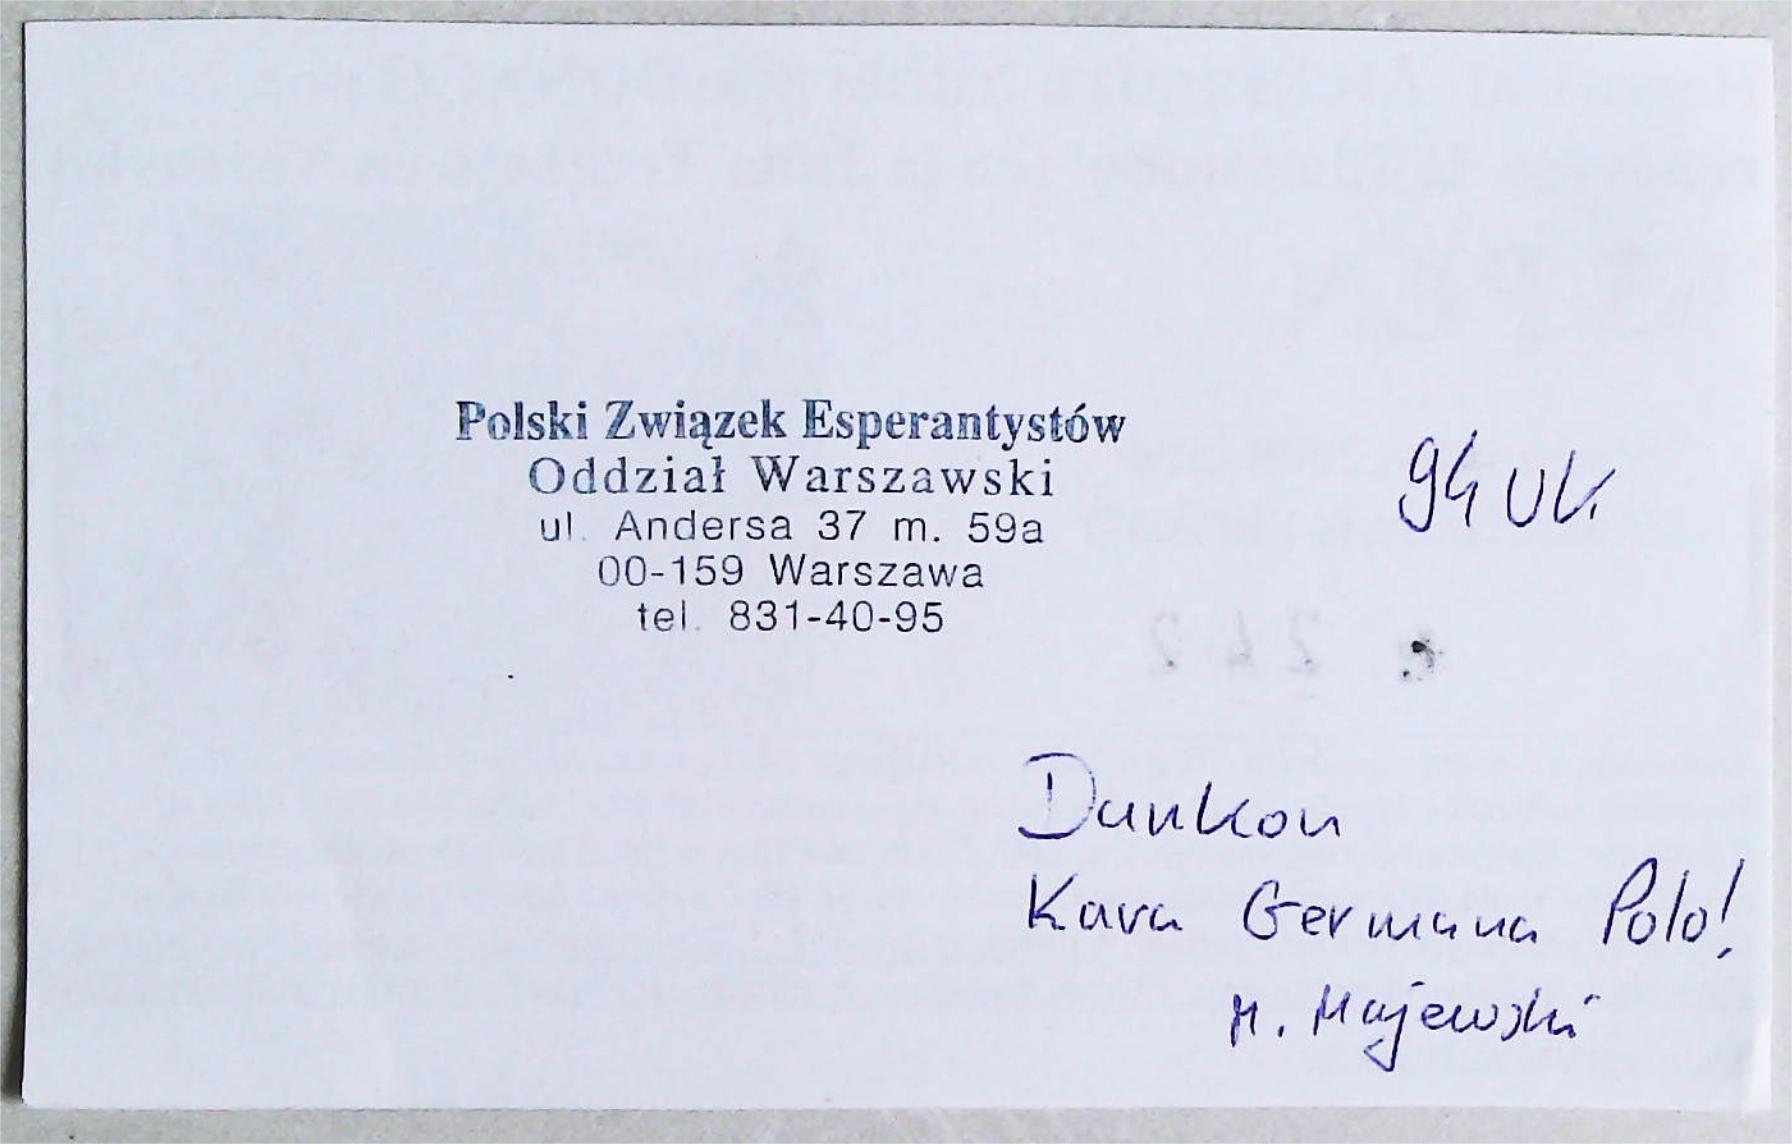 Polski Związek Esperantystów
Oddział Warszawski
ul. Andersa 37 m. 59a
00-159 Warszawa
tel. 831-40-95
94 UK.
Dankon
Kara Germana Polo!
M. Majewski